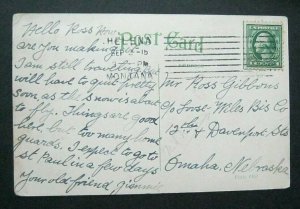 Hello Ross How
are you making it
I am still investing
will have to quit pretty
soon as the snow is about
to fly. Things are good
here, but too many home
guards. I expect to go to
St Paul in a few days
Your old friend,
Post Card
HELENA
SEP
PM
MONTANA
Mr Ross Gibbons
c/o Loose-Wiles Bis Co
12th & Davenport Sts
Omaha, Nebraska